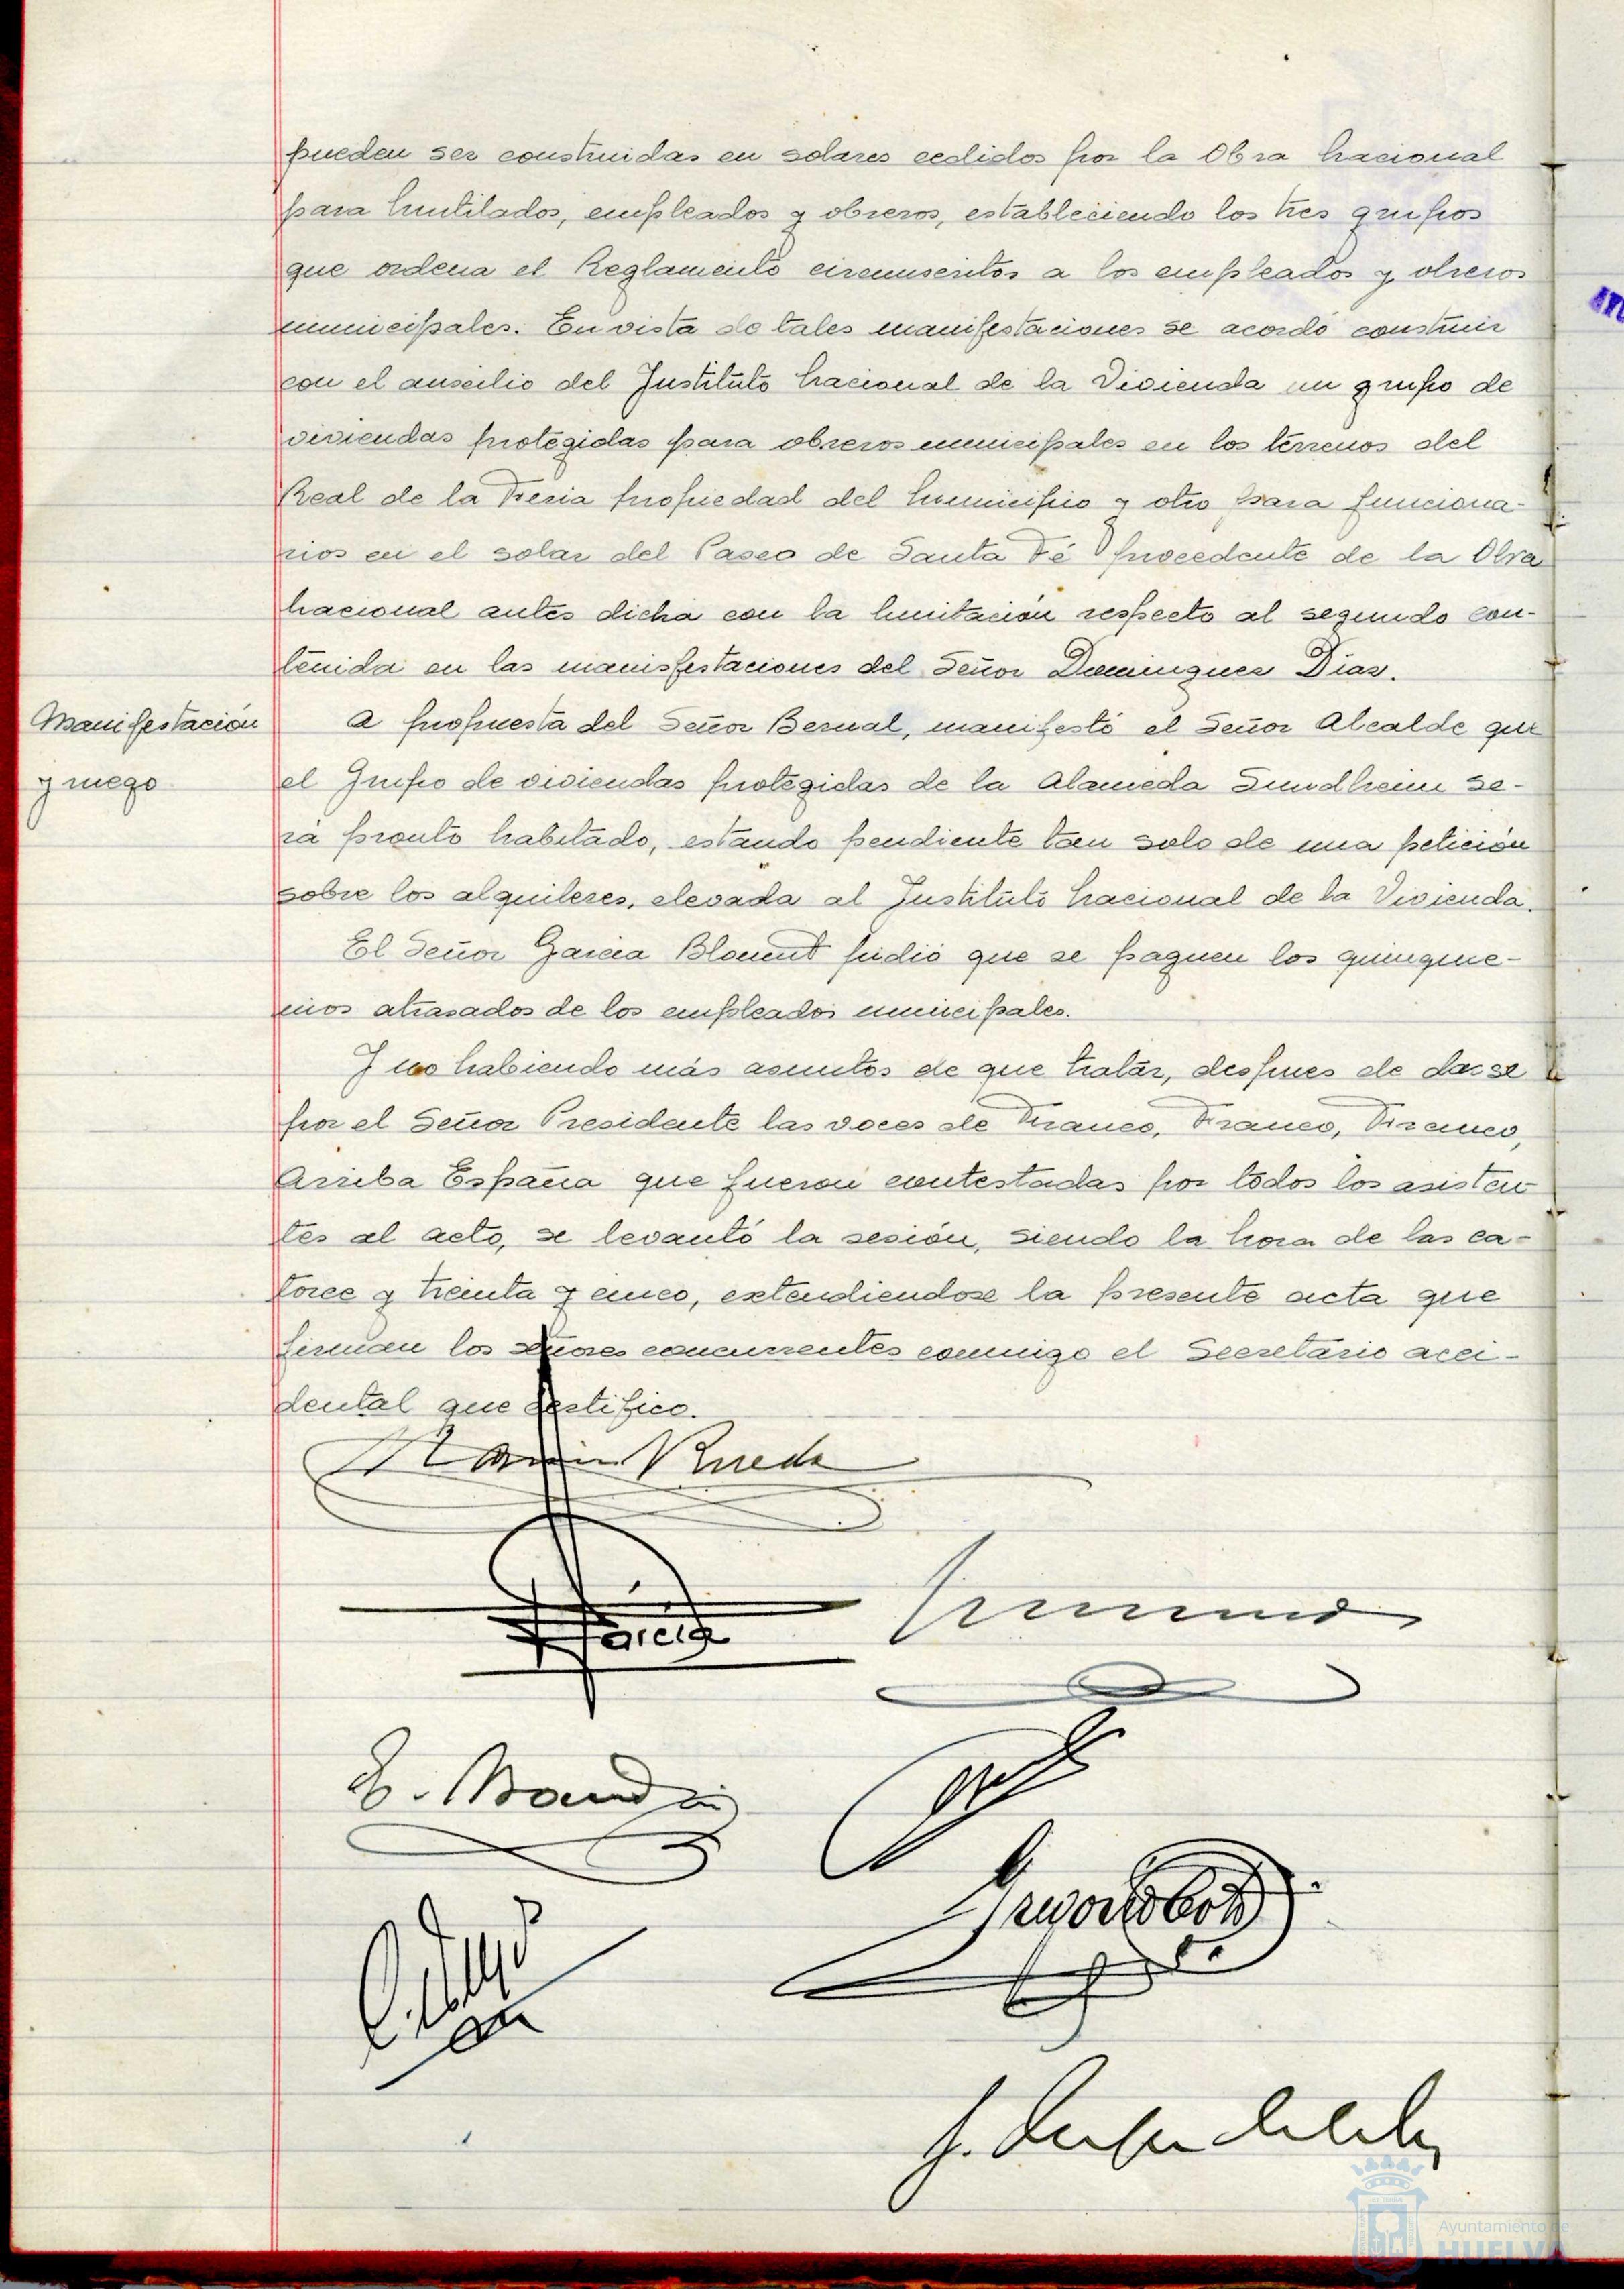 pueden ser construidas en solares cedidos por la Obra Nacional
para Mutilados, empleados y obreros, estableciendo los tres grupos
que ordena el Reglamento circunscritos a los empleados y obreros
municipales. En vista de tales manifestaciones se acordó construir
con el auxilio del Instituto Nacional de la Vivienda un grupo de
viviendas protegidas para obreros municipales en los terrenos del
Real de la Feria propiedad del Municipio y otro para funciona-
rios en el solar del Paseo de Santa Fé procedente de la Obra
Nacional antes dicha con la limitación respecto al segundo con-
tenida en las manisfestaciones del Señor Dominguez Diaz.
Manifestación
y ruego
A propuesta del Señor Bernal, manifestó el Señor Alcalde que
el Grupo de viviendas protegidas de la Alameda Sundheim se-
rá pronto habitado, estando pendiente tan solo de una petición
sobre los alquileres, elevada al Instituto Nacional de la Vivienda.
El Señor Garcia pidió que se paguen los quinque-
nios atrasados de los empleados municipales.
Y no habiendo más asuntos de que tratar, despues de darse
por el Señor Presidente las voces de Franco, Franco, Franco,
Arriba España que fueron contestadas por todos los asisten
tes al acto, se levantó la sesión, siendo la hora de las ca-
torce y treinta y cinco, extendiendose la presente acta que
firman los señores concurrentes conmigo el Secretario acci-
dental que certifico.
Rueda
Garcia
Ayuntamiento de
HUELVA